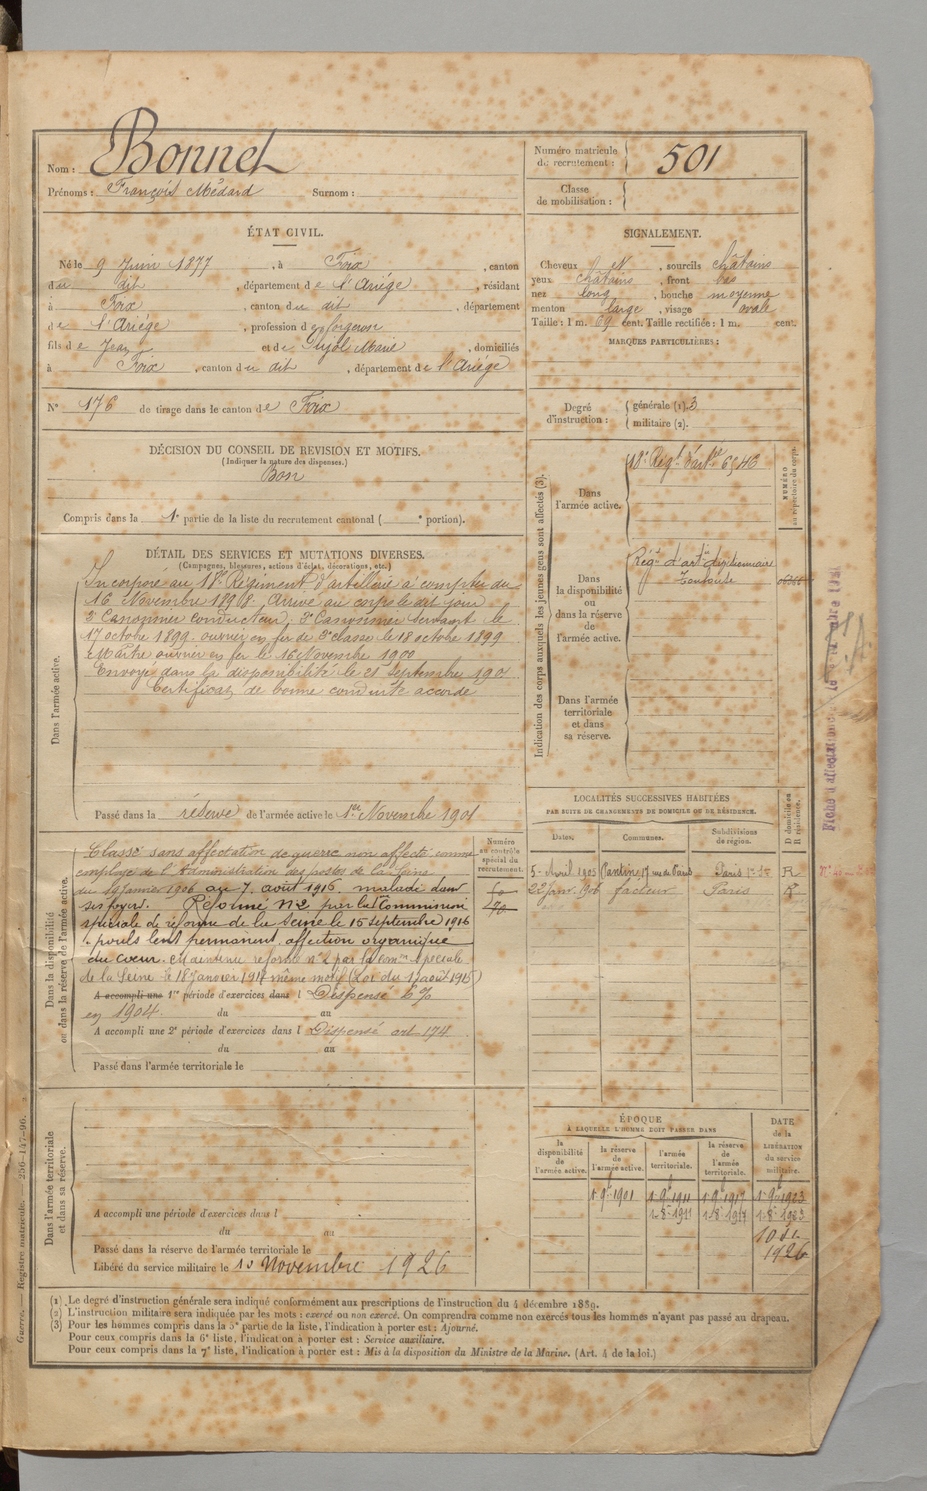 Nom : Bonnet
Prénoms : François Médard Surnom :
Numéro matricule du recrutement : 501
Classe de mobilisation :
ÉTAT CIVIL.
Né le 9 Juin 1877, à Foix, canton
du dit, département de l'Ariège, résidant
à Foix, canton du dit, département
de l'Ariège, profession de forgeron
fils de Jean et de Pujol Marie, domiciliés
à Foix, canton du dit, département de l'Ariège
N° 176 de tirage dans le canton de Foix
DÉCISION DU CONSEIL DE REVISION ET MOTIFS.
(Indiquer la nature des dispenses.)
Bon
Compris dans la 1e partie de la liste du recrutement cantonal ( e portion).
SIGNALEMENT.
Cheveux et, sourcils châtains
yeux châtains, front bas
nez long, bouche moyenne
menton large, visage ovale
Taille : 1 m. 69 cent. Taille rectifiée : 1 m. cent.
MARQUES PARTICULIÈRES :
Degré d'instruction :
générale (1). 3
militaire (2).
DÉTAIL DES SERVICES ET MUTATIONS DIVERSES.
(Campagnes, blessures, actions d'éclat, décorations, etc.)
Dans l'armée active.
Incorporé au 18e Régiment d'artillerie à compter du
16 Novembre 1898, Arrivé au corps le dit jour
2e Canonnier conducteur, 2e Canonnier servant le
17 octobre 1899. ouvrier en fer de 2e classe le 18 octobre 1899
Maître ouvrier en fer le 16 Novembre 1900
Envoyé dans la disponibilité le 21 septembre 190
Certificat de bonne conduite accordé
Passé dans la réserve de l'armée active le 1er Novembre 1901
Indication des corps auxquels les jeunes gens sont affectés (3).
NUMÉRO au répertoire du corps.
Dans l'armée active.
18e Régt d'artrie 6546
Dans la disponibilité ou dans la réserve de l'armée active.
Régt d'artie divisionnaire
Toulouse
Dans l'armée territoriale et dans sa réserve.
Dans la disponibilité ou dans la réserve de l'armée active.
Classé sans affectation de guerre non affecté, comme
employé de l'Administration des postes de la Seine
du 19 Janvier 1906 au 7 août 1916. maladie dans
ses foyers. Réformé N°2 par la Commission
spéciale de réforme de la Seine le 15 Septembre 1916
pouls lent permanent, affection organique
du cœur. Maintenu réformé n°2 par la Comon spéciale
de la Seine le 18 Janvier 1917 même motif (Loi du 17 août 1915)
A accompli une 1re période d'exercices dans l Dispensé
en 1904. du au
A accompli une 2e période d'exercices dans l Dispensé art 174
du au
Passé dans l'armée territoriale le
Numéro au contrôle spécial du recrutement.
LOCALITÉS SUCCESSIVES HABITÉES
PAR SUITE DE CHANGEMENTS DE DOMICILE OU DE RÉSIDENCE.
Dates. Communes. Subdivisions de région. D domicile ou R résidence.
5 Avril 1905 Pantin, 17 rue de Paris Paris R
22 Janv. 1906 facteur Paris R
Dans l'armée territoriale et dans sa réserve.
A accompli une période d'exercices dans l
du au
Passé dans la réserve de l'armée territoriale le
Libéré du service militaire le 10 Novembre 1926
ÉPOQUE
À LAQUELLE L'HOMME DOIT PASSER DANS
la disponibilité de l'armée active. la réserve de l'armée active. l'armée territoriale. la réserve de l'armée territoriale.
DATE de la LIBÉRATION du service militaire.
1 9e 1901 1 9e 1911 1 9e 1917 1 9e 1923
1 8 1911 1 8 1917 1 8 1923
1926
(1) Le degré d'instruction générale sera indiqué conformément aux prescriptions de l'instruction du 4 décembre 1889.
(2) L'instruction militaire sera indiquée par les mots : exercé ou non exercé. On comprendra comme non exercés tous les hommes n'ayant pas passé au drapeau.
(3) Pour les hommes compris dans la 5e partie de la liste, l'indication à porter est : Ajourné.
Pour ceux compris dans la 6e liste, l'indication à porter est : Service auxiliaire.
Pour ceux compris dans la 7e liste, l'indication à porter est : Mis à la disposition du Ministre de la Marine. (Art. 4 de la loi.)
Guerre. — Registre matricule. — 256-147-96.